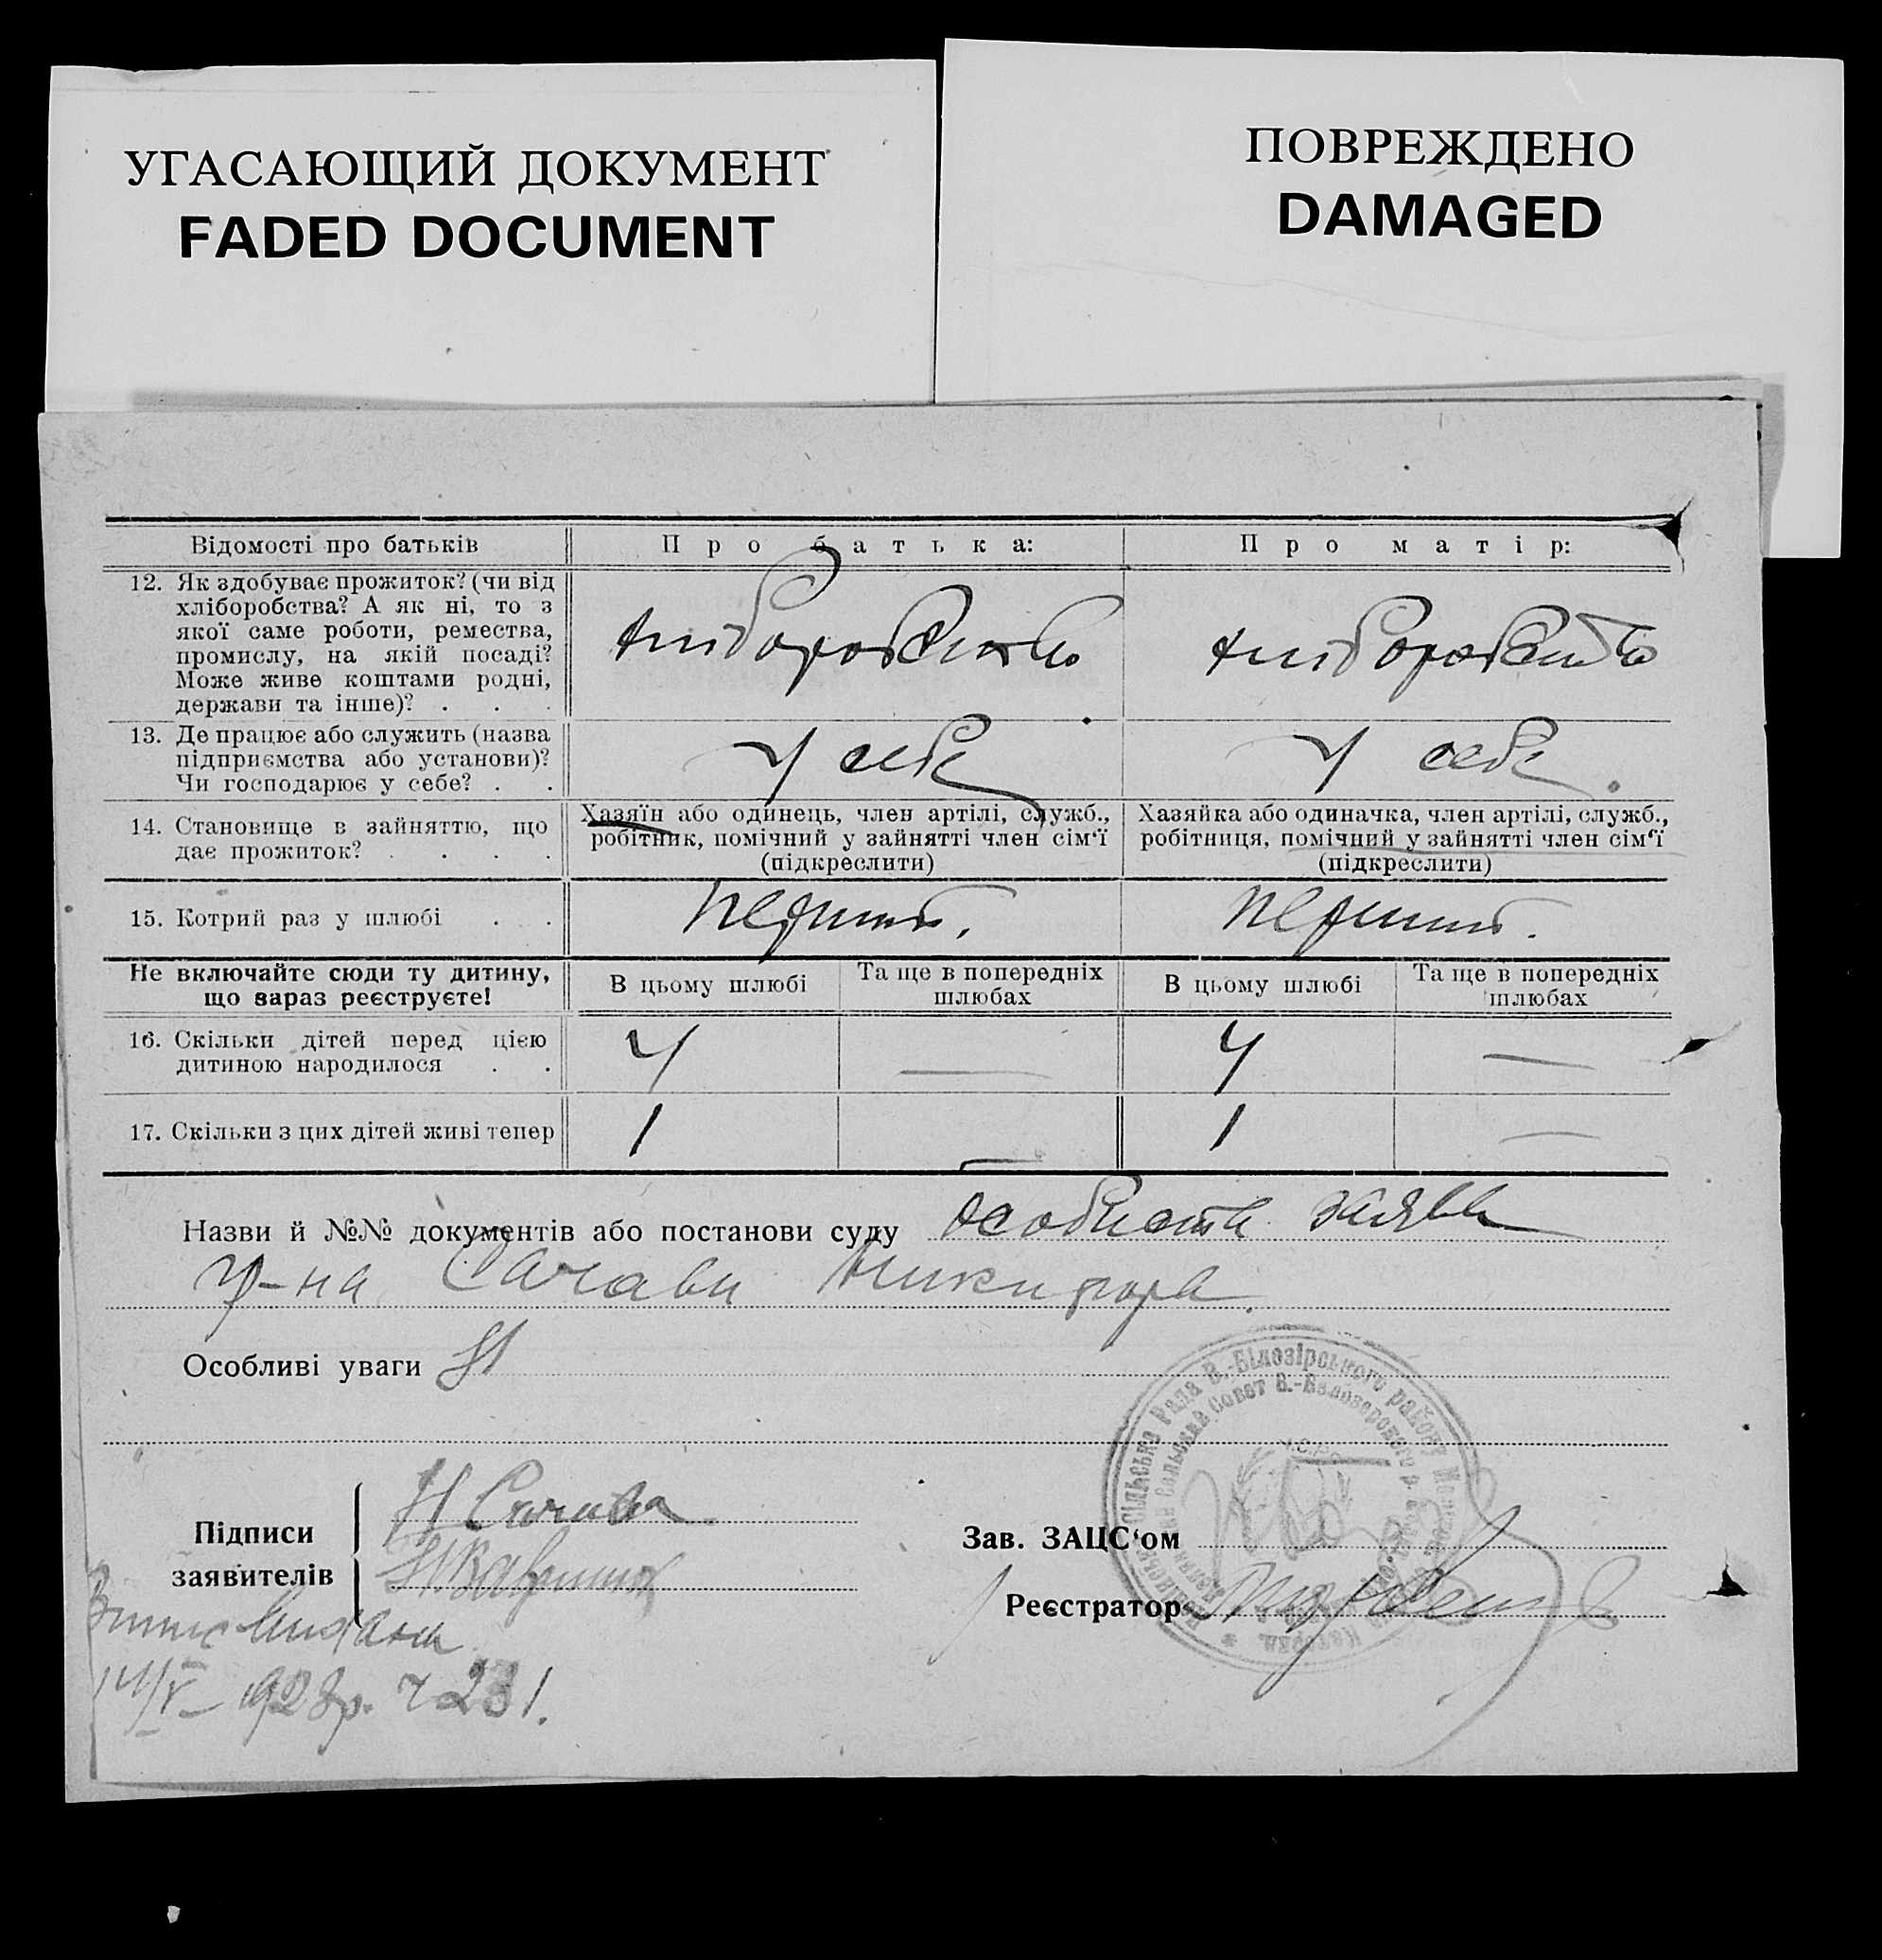 УГАСАЮЩИЙ ДОКУМЕНТ
FADED DOCUMENT
ПОВРЕЖДЕНО
DAMAGED
Відомості про батьків
Про батька:
Про матір:
12. Як здобуває прожиток? (чи від
хліборобства? А як ні, то з
якої саме роботи, ремества,
промислу, на якій посаді?
Може живе коштами родні,
держави та інше)? . . .
хліборобство
хліборобство
13. Де працює або служить (назва
підприємства або установи)?
Чи господарює у себе? . .
У себе
У себе
14. Становище в зайняттю, що
дає прожиток? . . . .
Хазяїн або одинець, член артілі, служб.,
робітник, помічний у зайнятті член сім'ї
(підкреслити)
Хазяйка або одиначка, член артілі, служб.,
робітниця, помічний у зайнятті член сім'ї
(підкреслити)
15. Котрий раз у шлюбі . .
перший.
перший.
Не включайте сюди ту дитину,
що зараз реєструєте!
В цьому шлюбі
Та ще в попередніх
шлюбах
В цьому шлюбі
Та ще в попередніх
шлюбах
16. Скільки дітей перед цією
дитиною народилося . .
4
—
4
—
17. Скільки з цих дітей живі тепер
1
—
1
—
Назви й №№ документів або постанови суду особиста заява
гр-на Сачави Никифора.
Особливі уваги
Підписи
заявителів
Н Сачава
Зав. ЗАЦС'ом
Реєстратор
сільська Рада В.-Білозірського району
Сельский Совет В.-Белозерского р.
14/V – 1928р. ч 231.